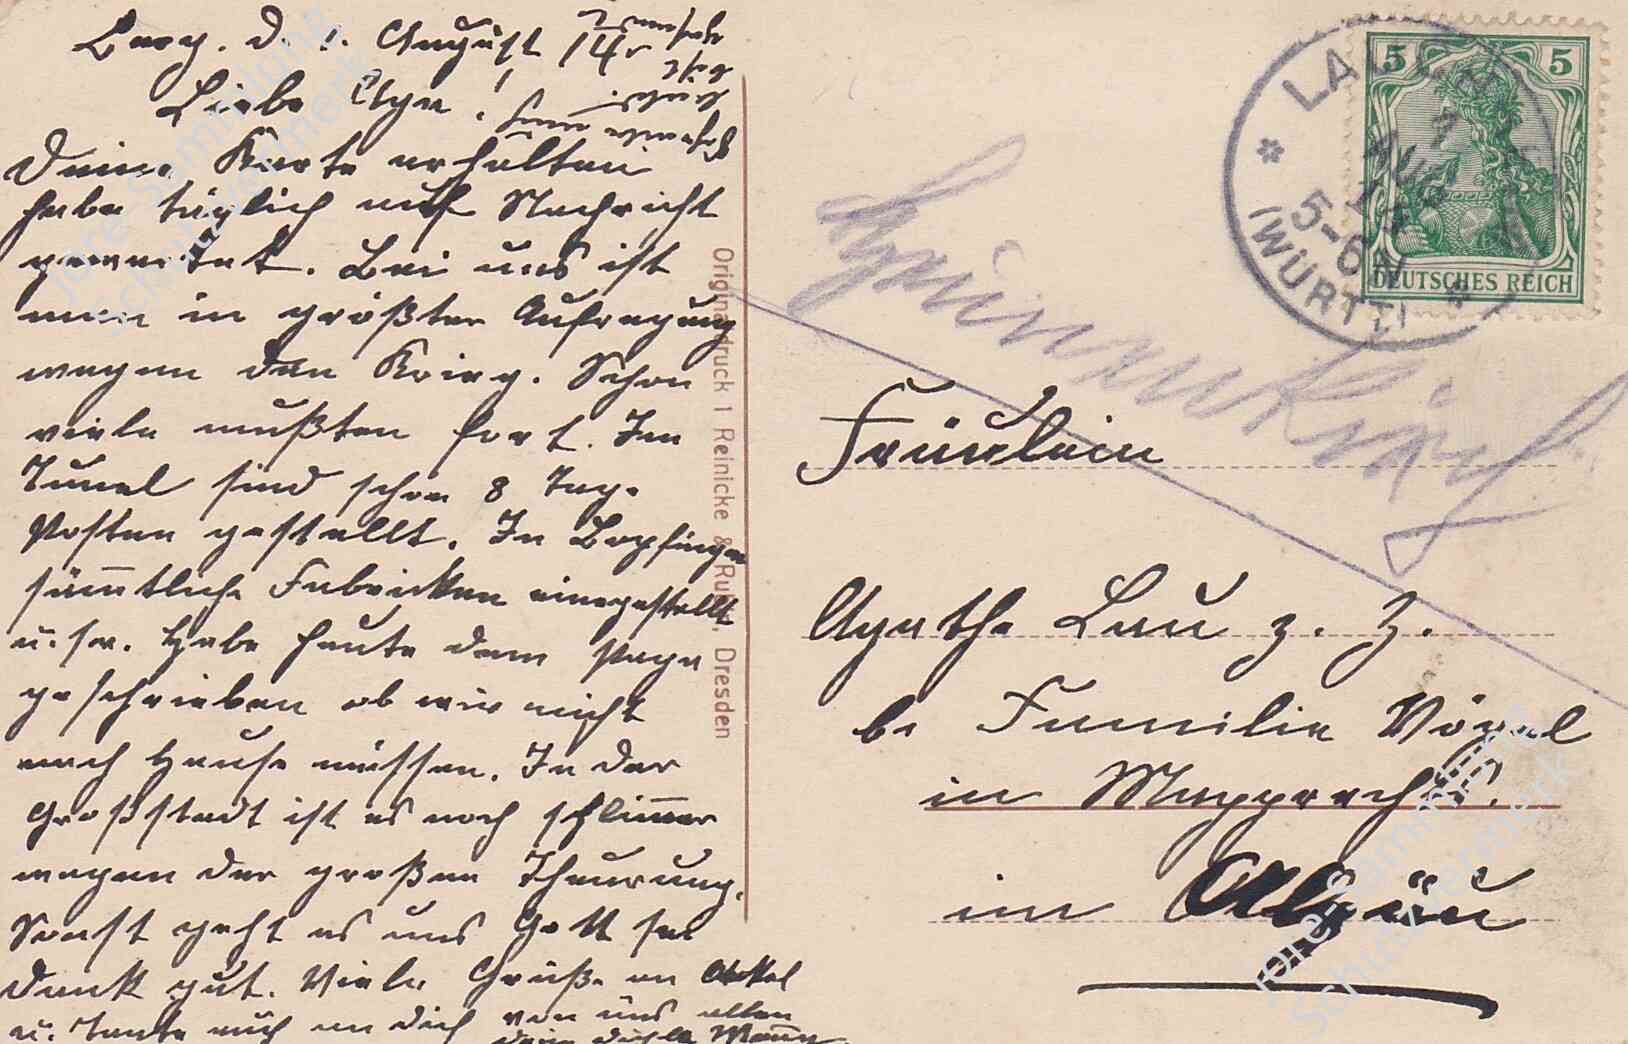 Berg. d. 1. August 14.
Liebe Agn!
Deine Karte erhalten
habe täglich auf Nachricht
gewartet. Bei uns ist
man in größter Aufregung
wegen den Krieg. Schon
viele mußten fort. Im
Tunel sind schon 8 Tag.
Posten gestellt. In Bopfingen
sämtliche Fabricken einegestellt
u. sw. Habe heute dem
geschrieben ob wir nicht
nach Hause müssen. In der
Großstadt ist es noch schlimer
wegen der großen Theurung.
Sonst geht es uns Gott sei
Dank gut. Viele Grüße an Onkel
u. Tante auch an Dich von uns allen
Originaldruck 1 Reinicke & Rubin, Dresden
5 5
DEUTSCHES REICH
1 AUG 14
5-6 N
(WÜRTT)
Fräulein
Agathe Lau z. Z.
be Familie Vögel
in Maypprechts.
im Allgäu